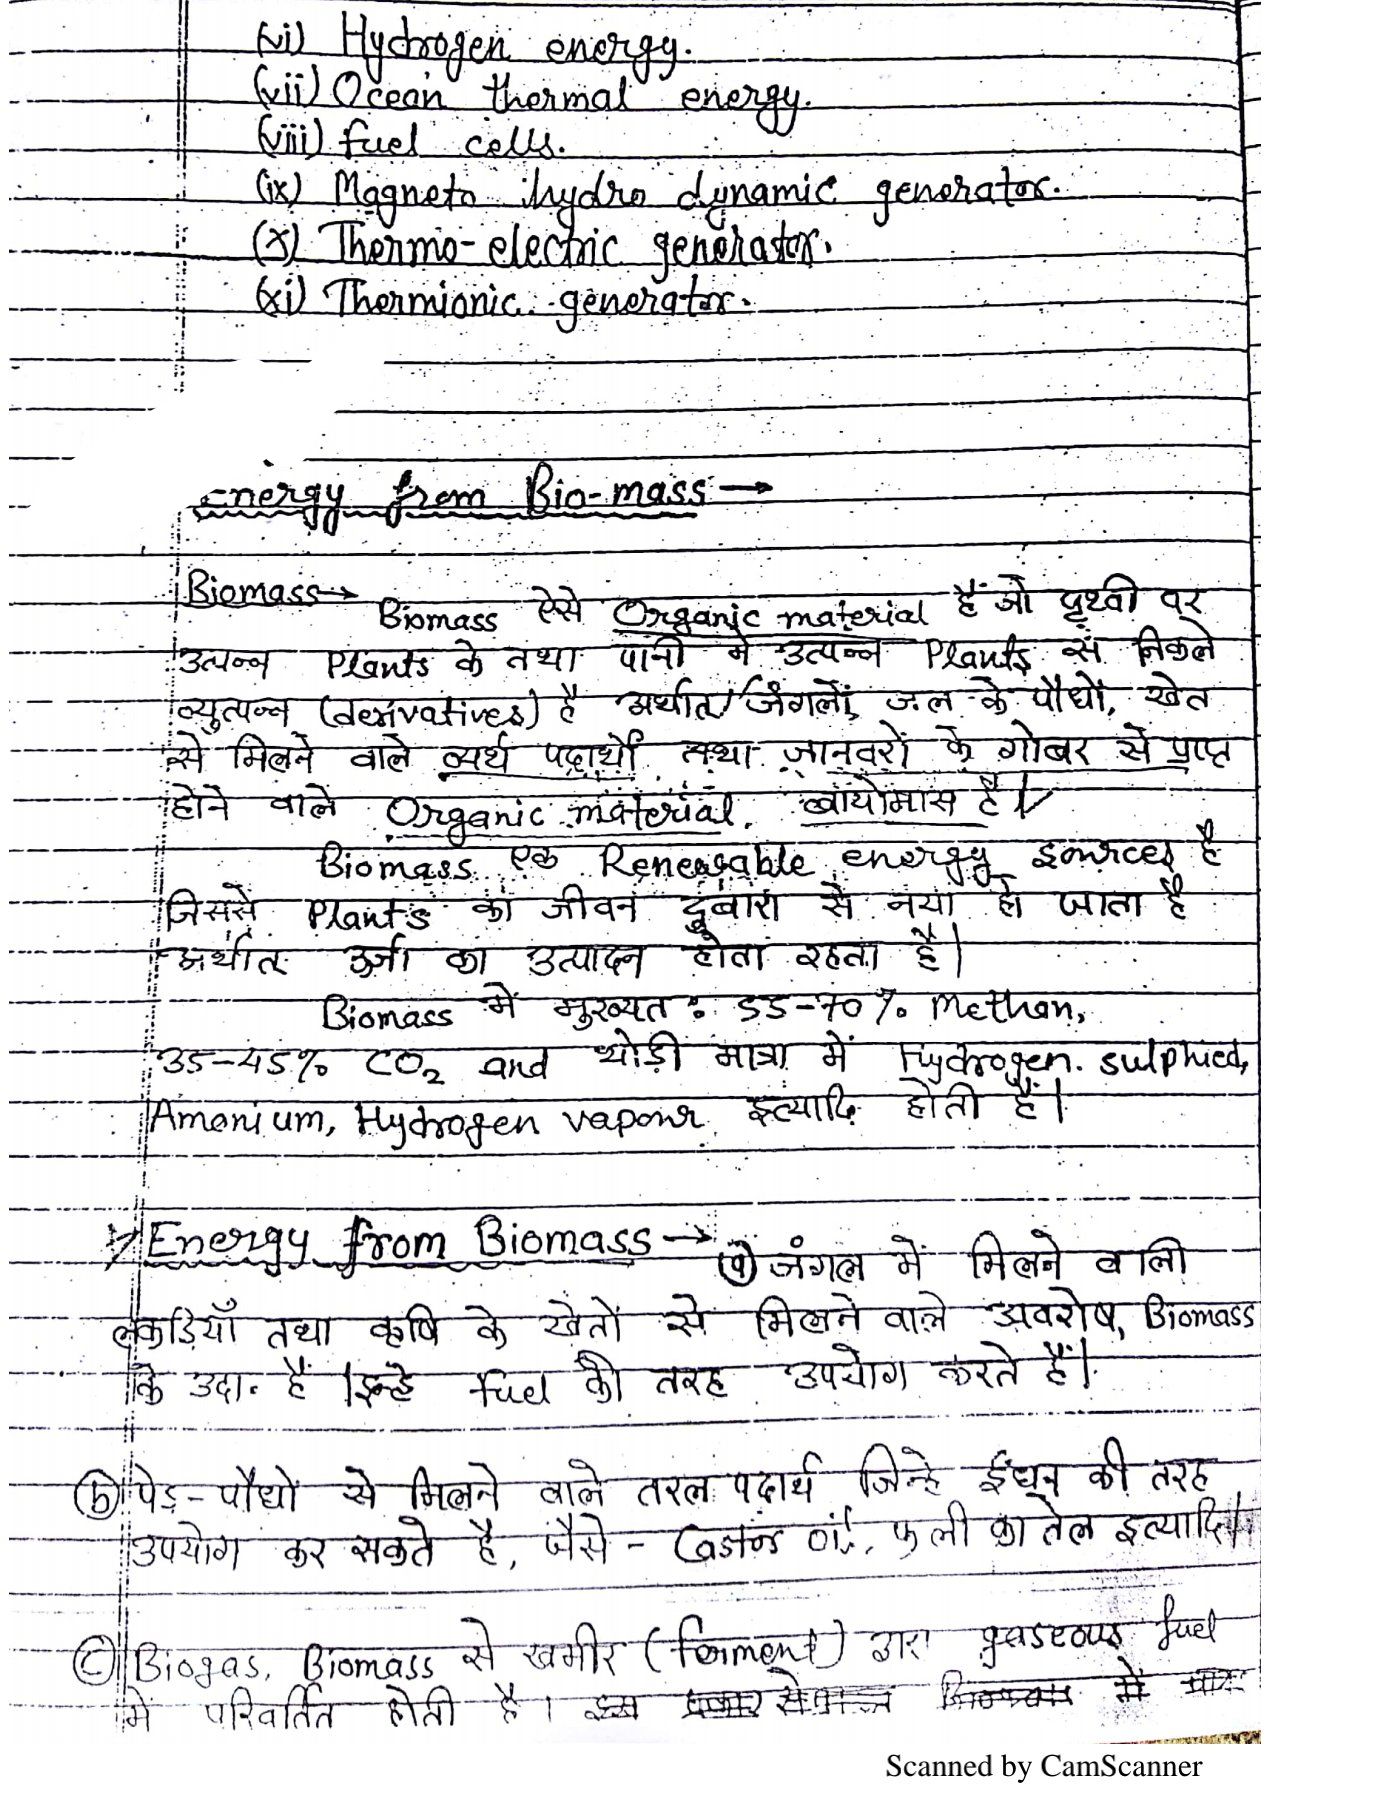 (vi) Hydrogen energy.
(vii) Ocean thermal energy.
(viii) fuel cells.
(ix) Magneto hydro dynamic generator.
(x) Thermo-electric generator.
(xi) Thermionic generator.
Energy from Bio-mass →
Biomass →
Biomass ऐसे Organic material हैं जो पृथ्वी पर
उत्पन्न Plants के तथा पानी मे उत्पन्न Plants से निकले
व्युत्पन्न (derivatives) है अर्थात् जंगलों, जल के पौधों, खेत
से मिलने वाले व्यर्थ पदार्थों तथा जानवरों के गोबर से प्राप्त
होने वाले Organic material. बायोमास है।
Biomass एक Renewable energy sources है
जिससे Plants का जीवन दुबारा से नया हो जाता है
अर्थात् ऊर्जा का उत्पादन होता रहता है।
Biomass में मुख्यत: 55-70% Methan,
35-45% CO2 and थोडी मात्रा में Hydrogen sulphied,
Amonium, Hydrogen vapour इत्यादि होती हैं।
Energy from Biomass → (a) जंगल में मिलने वाली
लकडियाँ तथा कृषि के खेतों से मिलने वाले अवशेष, Biomass
के उदा. हैं। इन्हे fuel की तरह उपयोग करते हैं।
(b) पेड़-पौधों से मिलने वाले तरल पदार्थ जिन्हे ईंधन की तरह
उपयोग कर सकते है, जैसे - Castor oil, फुली का तेल इत्यादि।
(c) Biogas, Biomass से खमीर (ferment) द्वारा gaseous fuel
मे परिवर्तित होती है।
Scanned by CamScanner